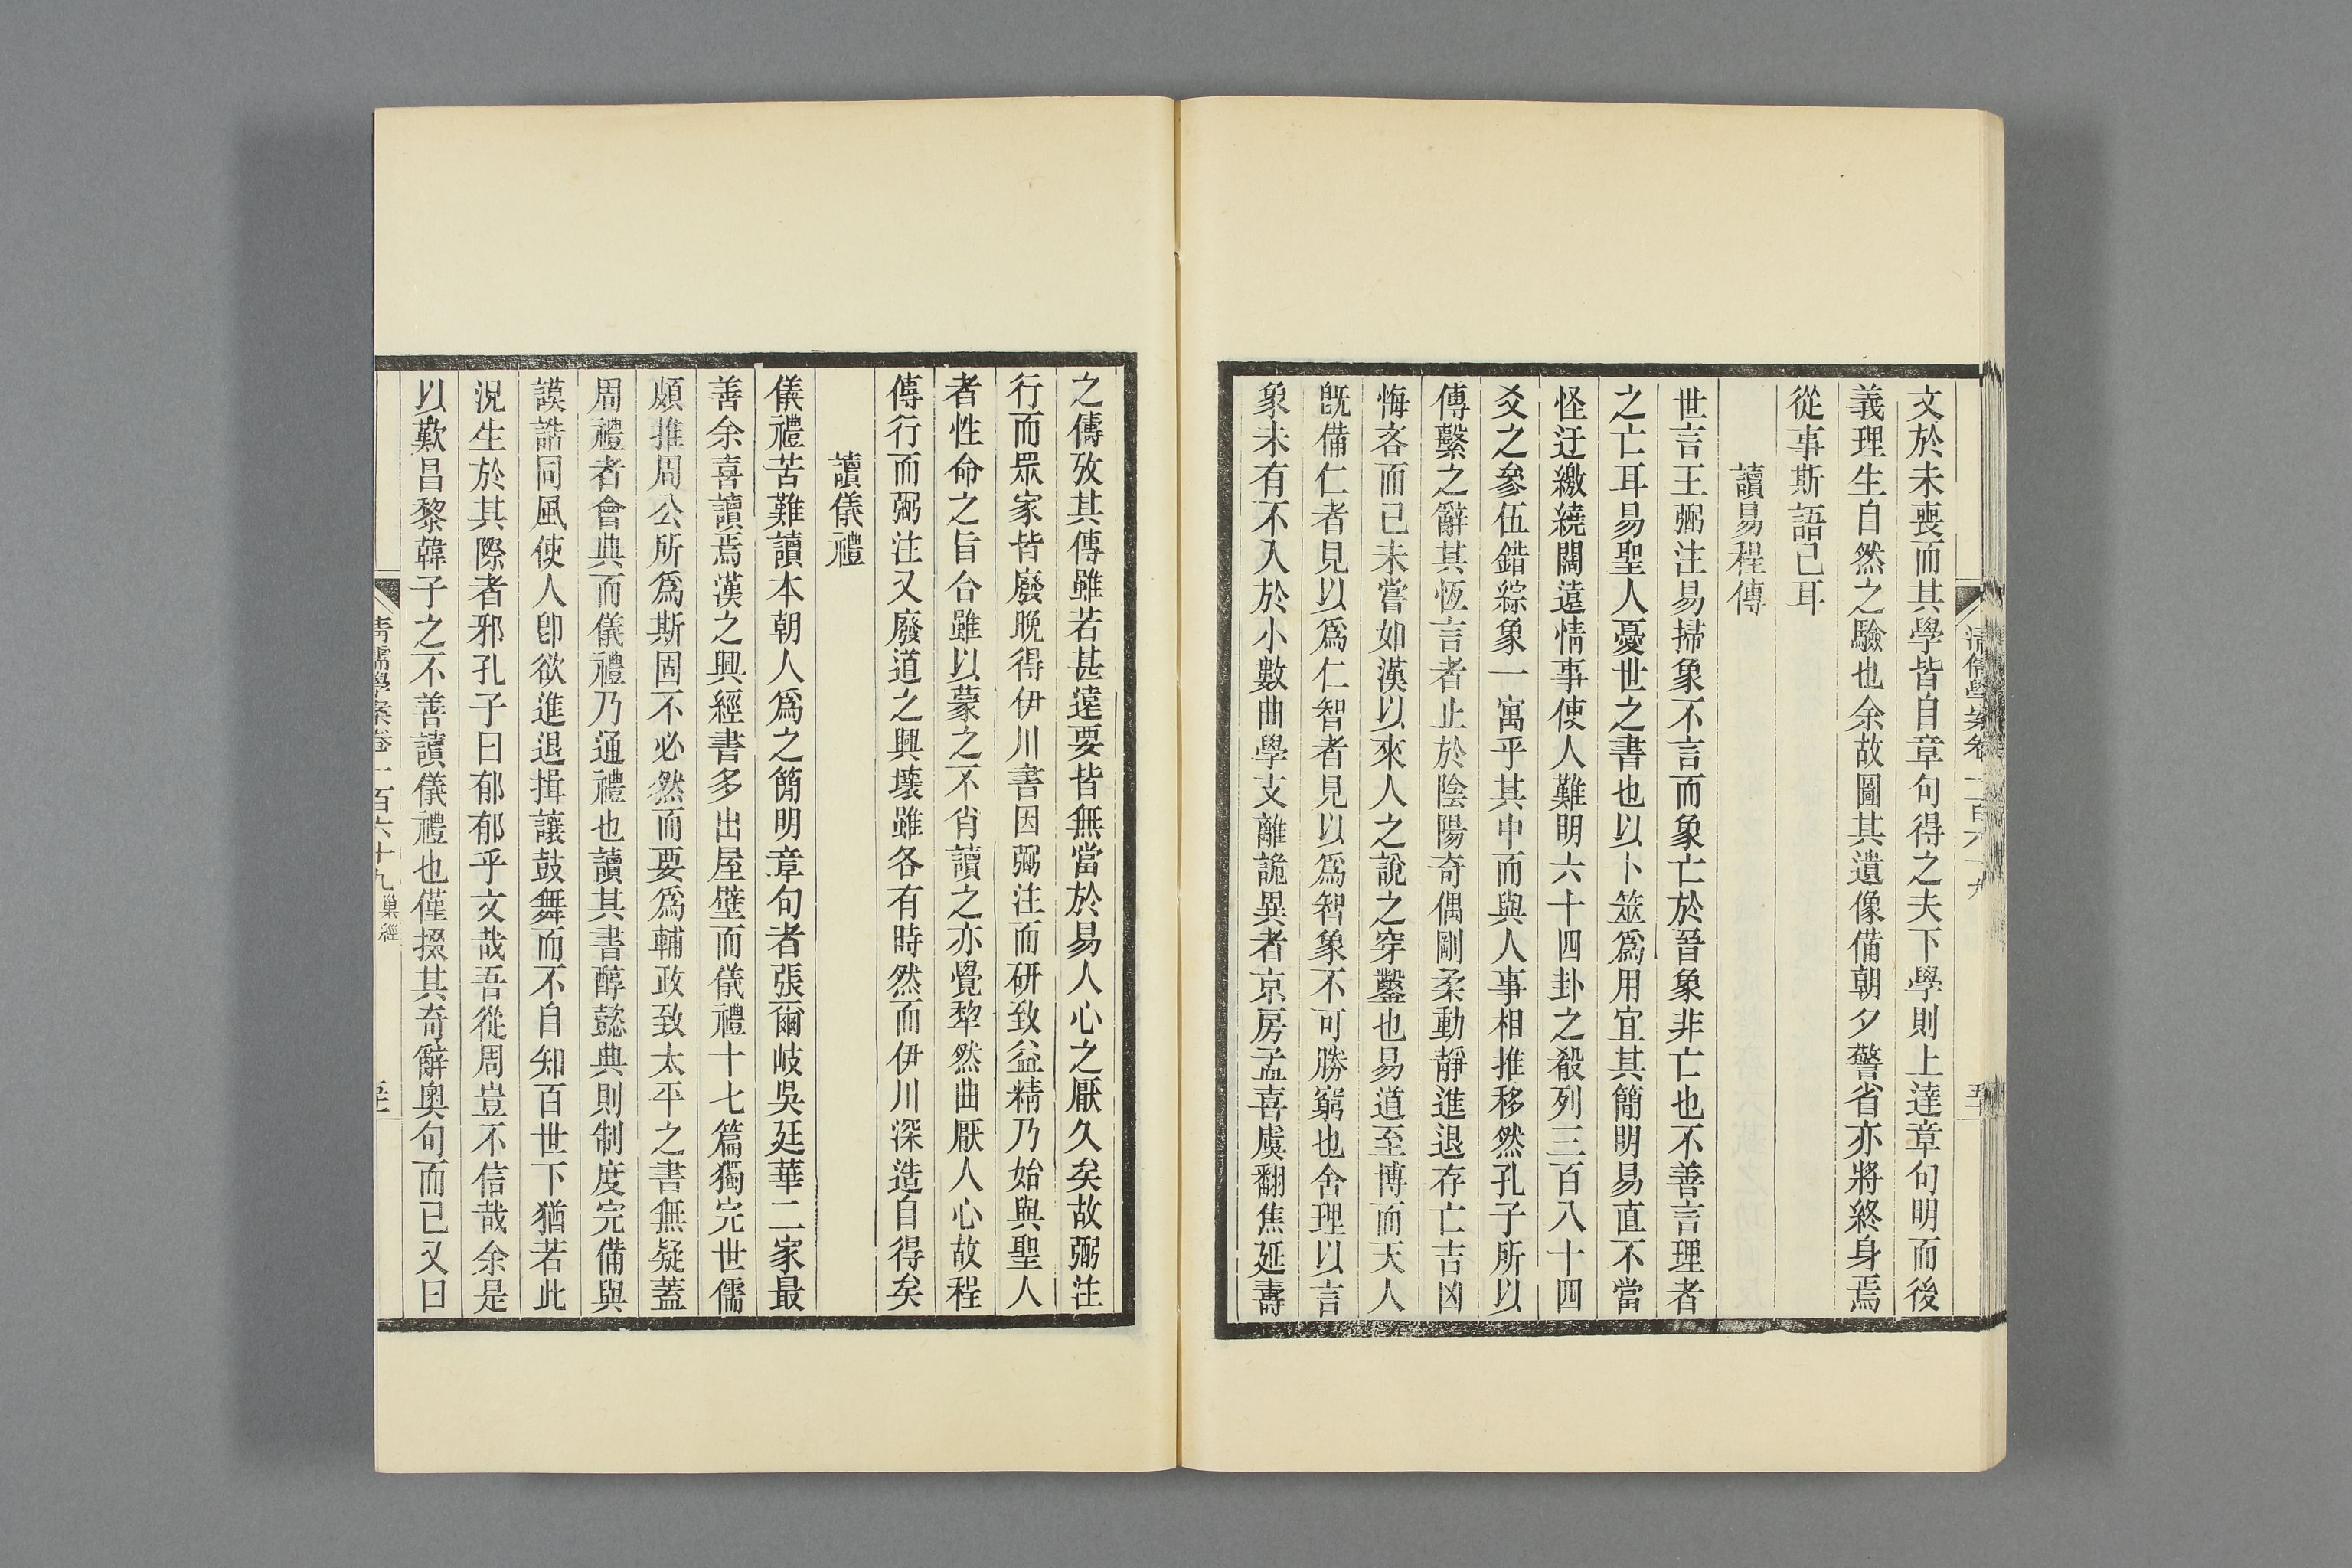 清儒學案卷二百六十九
文於未喪而其學皆自章句得之夫下學則上達章句明而後
義理生自然之驗也余故圖其遺像備朝夕警省亦將終身焉
從事斯語已耳
讀易程傳
世言王弼注易掃象不言而象亡於晉象非亡也不善言理者
之亡耳易聖人憂世之書也以卜筮爲用宜其簡明易直不當
怪迂繳繞闊遠情事使人難明六十四卦之殽列三百八十四
爻之參伍錯綜象一寓乎其中而與人事相推移然孔子所以
傳繫之辭其恆言者止於陰陽奇偶剛柔動靜進退存亡吉凶
悔吝而已未嘗如漢以來人之說之穿鑿也易道至博而天人
旣備仁者見以爲仁智者見以爲智象不可勝窮也舍理以言
象未有不入於小數曲學支離詭異者京房孟喜虞翻焦延壽
之儔攷其傳雖若甚遠要皆無當於易人心之厭久矣故弼注
行而眾家皆廢晚得伊川書因弼注而硏致益精乃始與聖人
者性命之旨合雖以蒙之不肖讀之亦覺犂然曲厭人心故程
傳行而弼注又廢道之興壞雖各有時然而伊川深造自得矣
讀儀禮
儀禮苦難讀本朝人爲之簡明章句者張爾岐吳廷華二家最
善余喜讀焉漢之興經書多出屋壁而儀禮十七篇獨完世儒
頗推周公所爲斯固不必然而要爲輔政致太平之書無疑蓋
周禮者會典而儀禮乃通禮也讀其書醇懿典則制度完備與
謨誥同風使人卽欲進退揖讓鼓舞而不自知百世下猶若此
況生於其際者邪孔子曰郁郁乎文哉吾從周豈不信哉余是
以歎昌黎韓子之不善讀儀禮也僅掇其奇辭奧句而已又曰
清儒學案卷一百六十九 巢經